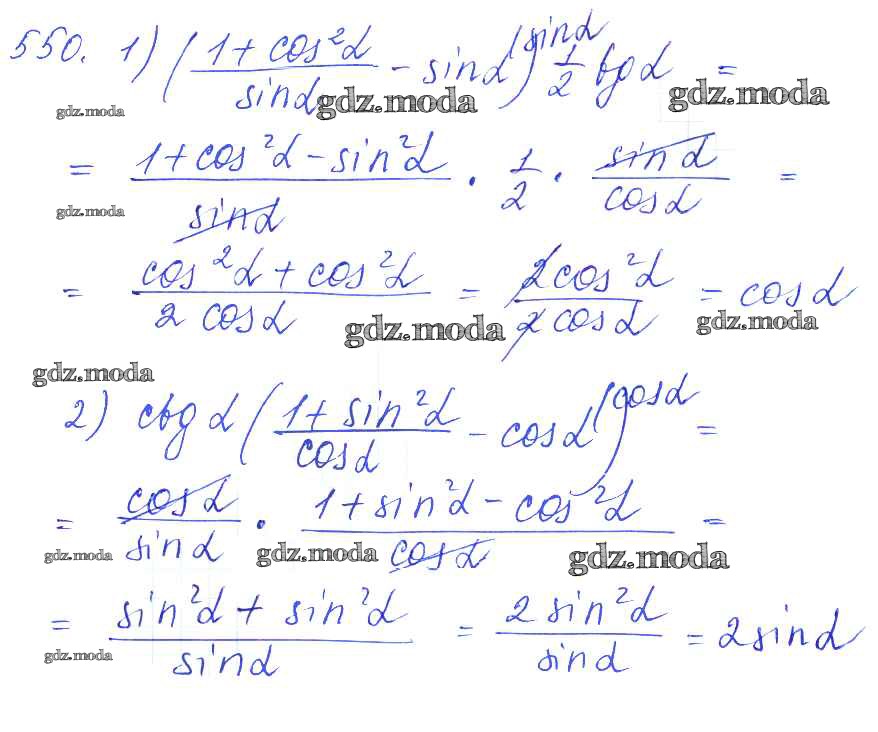 550. 1) ( (1 + cos²α)/sinα − sinα^(sinα ) 1/2 tg α =
gdz.moda gdz.moda gdz.moda
= (1 + cos²α − sin²α)/sinα · 1/2 · sinα/cosα =
gdz.moda
= (cos²α + cos²α)/(2 cosα) = (2cos²α)/(2 cosα) = cosα
gdz.moda gdz.moda
gdz.moda
2) ctg α ( (1 + sin²α)/cosα − cosα^(cosα ) =
= cosα/sinα · (1 + sin²α − cos²α)/cosα =
gdz.moda gdz.moda gdz.moda
= (sin²α + sin²α)/sinα = (2 sin²α)/sinα = 2sinα
gdz.moda